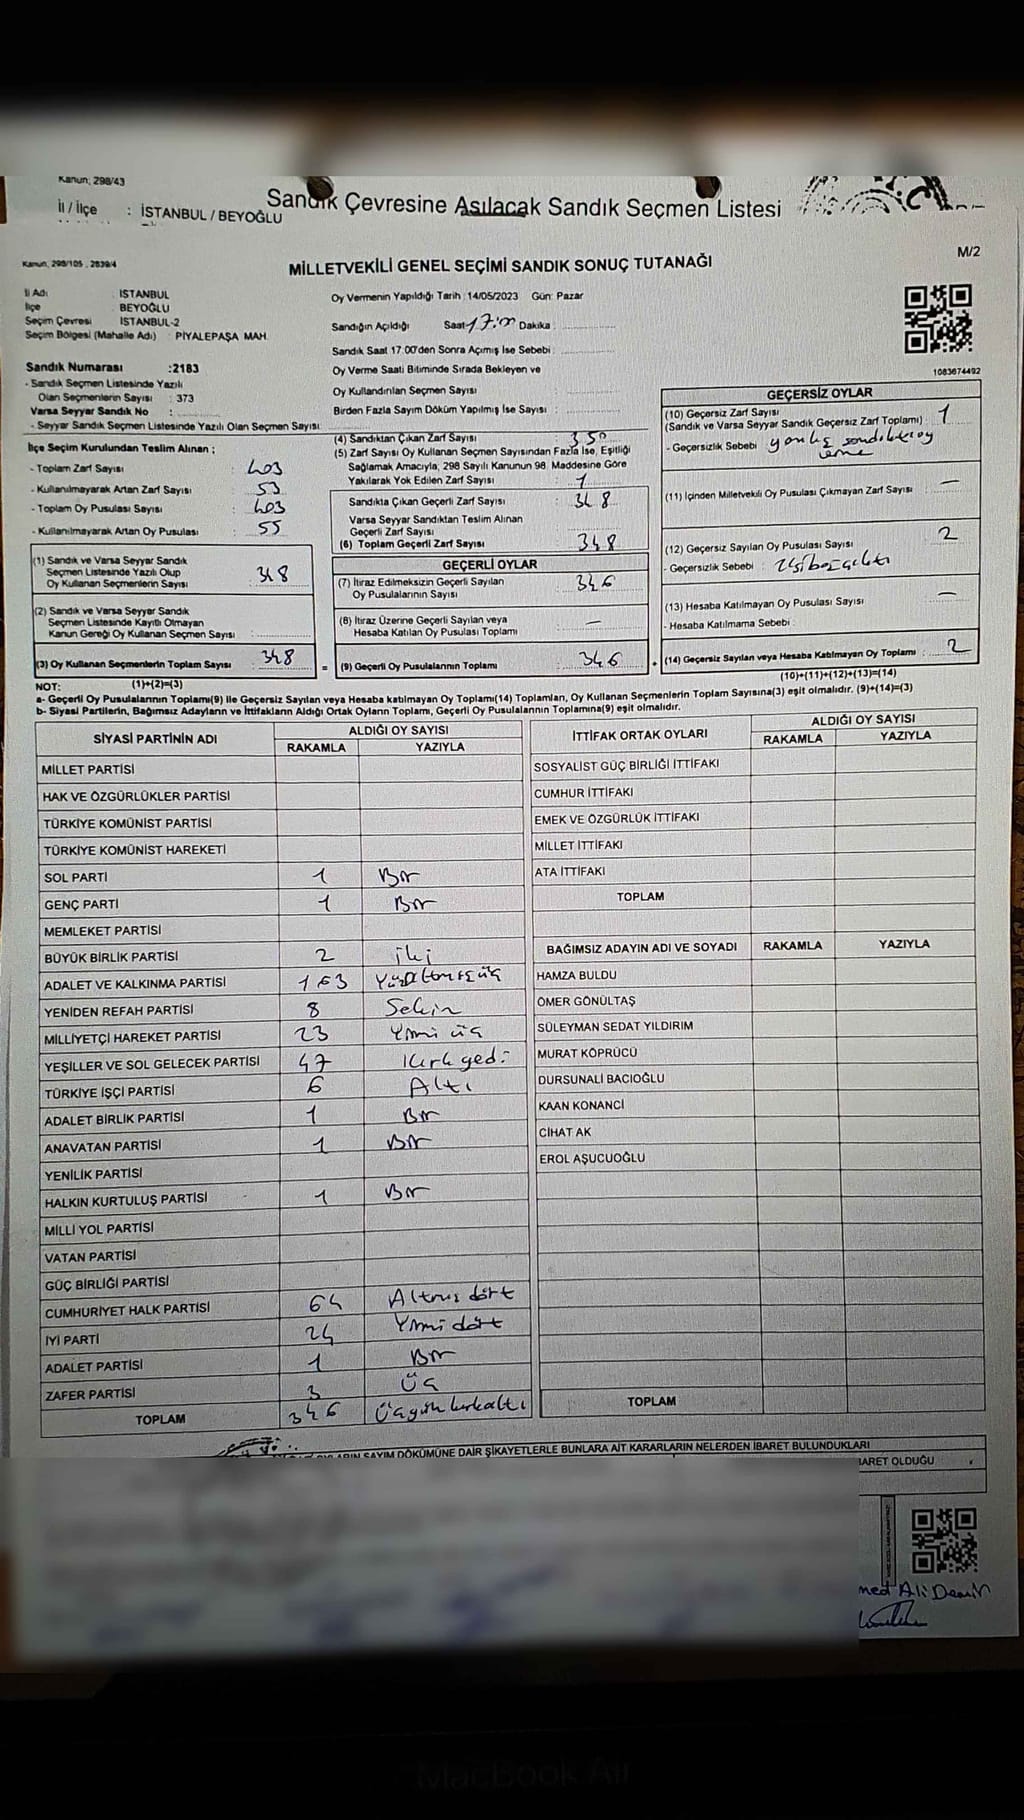 Kanun; 298/43
İl / İlçe : İSTANBUL / BEYOĞLU
Sandık Çevresine Asılacak Sandık Seçmen Listesi
Kanun, 298/105 , 2839/4
MİLLETVEKİLİ GENEL SEÇİMİ SANDIK SONUÇ TUTANAĞI
M/2
İl Adı : İSTANBUL
İlçe BEYOĞLU
Seçim Çevresi İSTANBUL-2
Seçim Bölgesi (Mahalle Adı) : PİYALEPAŞA MAH
Oy Vermenin Yapıldığı Tarih : 14/05/2023 Gün: Pazar
Sandığın Açıldığı Saat 17:00 Dakika :
Sandık Saat 17:00'den Sonra Açımış İse Sebebi :
Oy Verme Saati Bitiminde Sırada Bekleyen ve
Oy Kullandırılan Seçmen Sayısı :
Birden Fazla Sayım Döküm Yapılmış İse Sayısı :
1083674492
Sandık Numarası :2183
- Sandık Seçmen Listesinde Yazılı
Olan Seçmenlerin Sayısı : 373
Varsa Seyyar Sandık No :
- Seyyar Sandık Seçmen Listesinde Yazılı Olan Seçmen Sayısı:
İlçe Seçim Kurulundan Teslim Alınan ;
- Toplam Zarf Sayısı : 403
- Kullanılmayarak Artan Zarf Sayısı : 53
- Toplam Oy Pusulası Sayısı : 403
- Kullanılmayarak Artan Oy Pusulası : 55
(1) Sandık ve Varsa Seyyar Sandık
Seçmen Listesinde Yazılı Olup
Oy Kullanan Seçmenlerin Sayısı : 348
(2) Sandık ve Varsa Seyyar Sandık
Seçmen Listesinde Kayıtlı Olmayan
Kanun Gereği Oy Kullanan Seçmen Sayısı :
(3) Oy Kullanan Seçmenlerin Toplam Sayısı : 348
(4) Sandıktan Çıkan Zarf Sayısı : 350
(5) Zarf Sayısı Oy Kullanan Seçmen Sayısından Fazla İse, Eşitliği
Sağlamak Amacıyla, 298 Sayılı Kanunun 98. Maddesine Göre
Yakılarak Yok Edilen Zarf Sayısı : 1
Sandıkta Çıkan Geçerli Zarf Sayısı : 348
Varsa Seyyar Sandıktan Teslim Alınan
Geçerli Zarf Sayısı :
(6) Toplam Geçerli Zarf Sayısı : 348
GEÇERLİ OYLAR
(7) İtiraz Edilmeksizin Geçerli Sayılan : 346
Oy Pusulalarının Sayısı
(8) İtiraz Üzerine Geçerli Sayılan veya : —
Hesaba Katılan Oy Pusulası Toplamı
= (9) Geçerli Oy Pusulalarının Toplamı : 346
GEÇERSİZ OYLAR
(10) Geçersiz Zarf Sayısı 1
(Sandık ve Varsa Seyyar Sandık Geçersiz Zarf Toplamı) :
- Geçersizlik Sebebi :
(11) İçinden Milletvekili Oy Pusulası Çıkmayan Zarf Sayısı : —
(12) Geçersiz Sayılan Oy Pusulası Sayısı : 2
- Geçersizlik Sebebi :
(13) Hesaba Katılmayan Oy Pusulası Sayısı : —
- Hesaba Katılmama Sebebi :
+ (14) Geçersiz Sayılan veya Hesaba Katılmayan Oy Toplamı : 2
NOT: (1)+(2)=(3)
(10)+(11)+(12)+(13)=(14)
a- Geçerli Oy Pusulalarının Toplamı(9) ile Geçersiz Sayılan veya Hesaba katılmayan Oy Toplamı(14) Toplamları, Oy Kullanan Seçmenlerin Toplam Sayısına(3) eşit olmalıdır. (9)+(14)=(3)
b- Siyasi Partilerin, Bağımsız Adayların ve İttifakların Aldığı Ortak Oyların Toplamı, Geçerli Oy Pusulalarının Toplamına(9) eşit olmalıdır.
SİYASİ PARTİNİN ADI ALDIĞI OY SAYISI
RAKAMLA YAZIYLA
MİLLET PARTİSİ
HAK VE ÖZGÜRLÜKLER PARTİSİ
TÜRKİYE KOMÜNİST PARTİSİ
TÜRKİYE KOMÜNİST HAREKETİ
SOL PARTİ 1 Bir
GENÇ PARTİ 1 Bir
MEMLEKET PARTİSİ
BÜYÜK BİRLİK PARTİSİ 2 iki
ADALET VE KALKINMA PARTİSİ 163 Yüzaltmışüç
YENİDEN REFAH PARTİSİ 8 Sekiz
MİLLİYETÇİ HAREKET PARTİSİ 23 Yirmi üç
YEŞİLLER VE SOL GELECEK PARTİSİ 47 Kırk yedi
TÜRKİYE İŞÇİ PARTİSİ 6 Altı
ADALET BİRLİK PARTİSİ 1 Bir
ANAVATAN PARTİSİ 1 Bir
YENİLİK PARTİSİ
HALKIN KURTULUŞ PARTİSİ 1 Bir
MİLLİ YOL PARTİSİ
VATAN PARTİSİ
GÜÇ BİRLİĞİ PARTİSİ
CUMHURİYET HALK PARTİSİ 64 Altmış dört
İYİ PARTİ 24 Yirmi dört
ADALET PARTİSİ 1 Bir
ZAFER PARTİSİ 3 Üç
TOPLAM 346 Üçyüzkırkaltı
İTTİFAK ORTAK OYLARI ALDIĞI OY SAYISI
RAKAMLA YAZIYLA
SOSYALİST GÜÇ BİRLİĞİ İTTİFAKI
CUMHUR İTTİFAKI
EMEK VE ÖZGÜRLÜK İTTİFAKI
MİLLET İTTİFAKI
ATA İTTİFAKI
TOPLAM
BAĞIMSIZ ADAYIN ADI VE SOYADI RAKAMLA YAZIYLA
HAMZA BULDU
ÖMER GÖNÜLTAŞ
SÜLEYMAN SEDAT YILDIRIM
MURAT KÖPRÜCÜ
DURSUNALİ BACIOĞLU
KAAN KONANCİ
CİHAT AK
EROL AŞUCUOĞLU
TOPLAM
SAYIM DÖKÜMÜNE DAİR ŞİKAYETLERLE BUNLARA AİT KARARLARIN NELERDEN İBARET BULUNDUKLARI
BARET OLDUĞU
med Ali Demir
MacBook Air